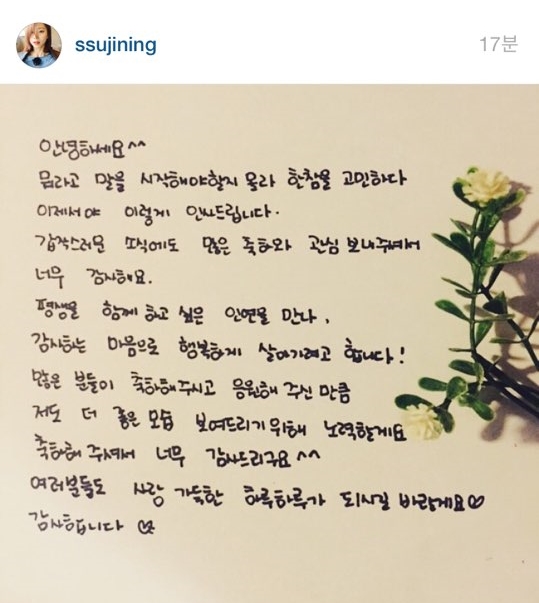 ssujining
17분
안녕하세요^^
뭐라고 말을 시작해야할지 몰라 한참을 고민하다
이제서야 이렇게 인사드립니다.
갑작스러운 소식에도 많은 축하와 관심 보내주셔서
너무 감사해요.
평생을 함께 하고 싶은 인연을 만나,
감사하는 마음으로 행복하게 살아가려고 합니다!
많은 분들이 축하해주시고 응원해 주신 만큼
저도 더 좋은 모습 보여드리기 위해 노력할게요
축하해 주셔서 너무 감사드리구요^^
여러분들도 사랑 가득한 하루하루가 되시길 바랄게요♡
감사합니다 ♡